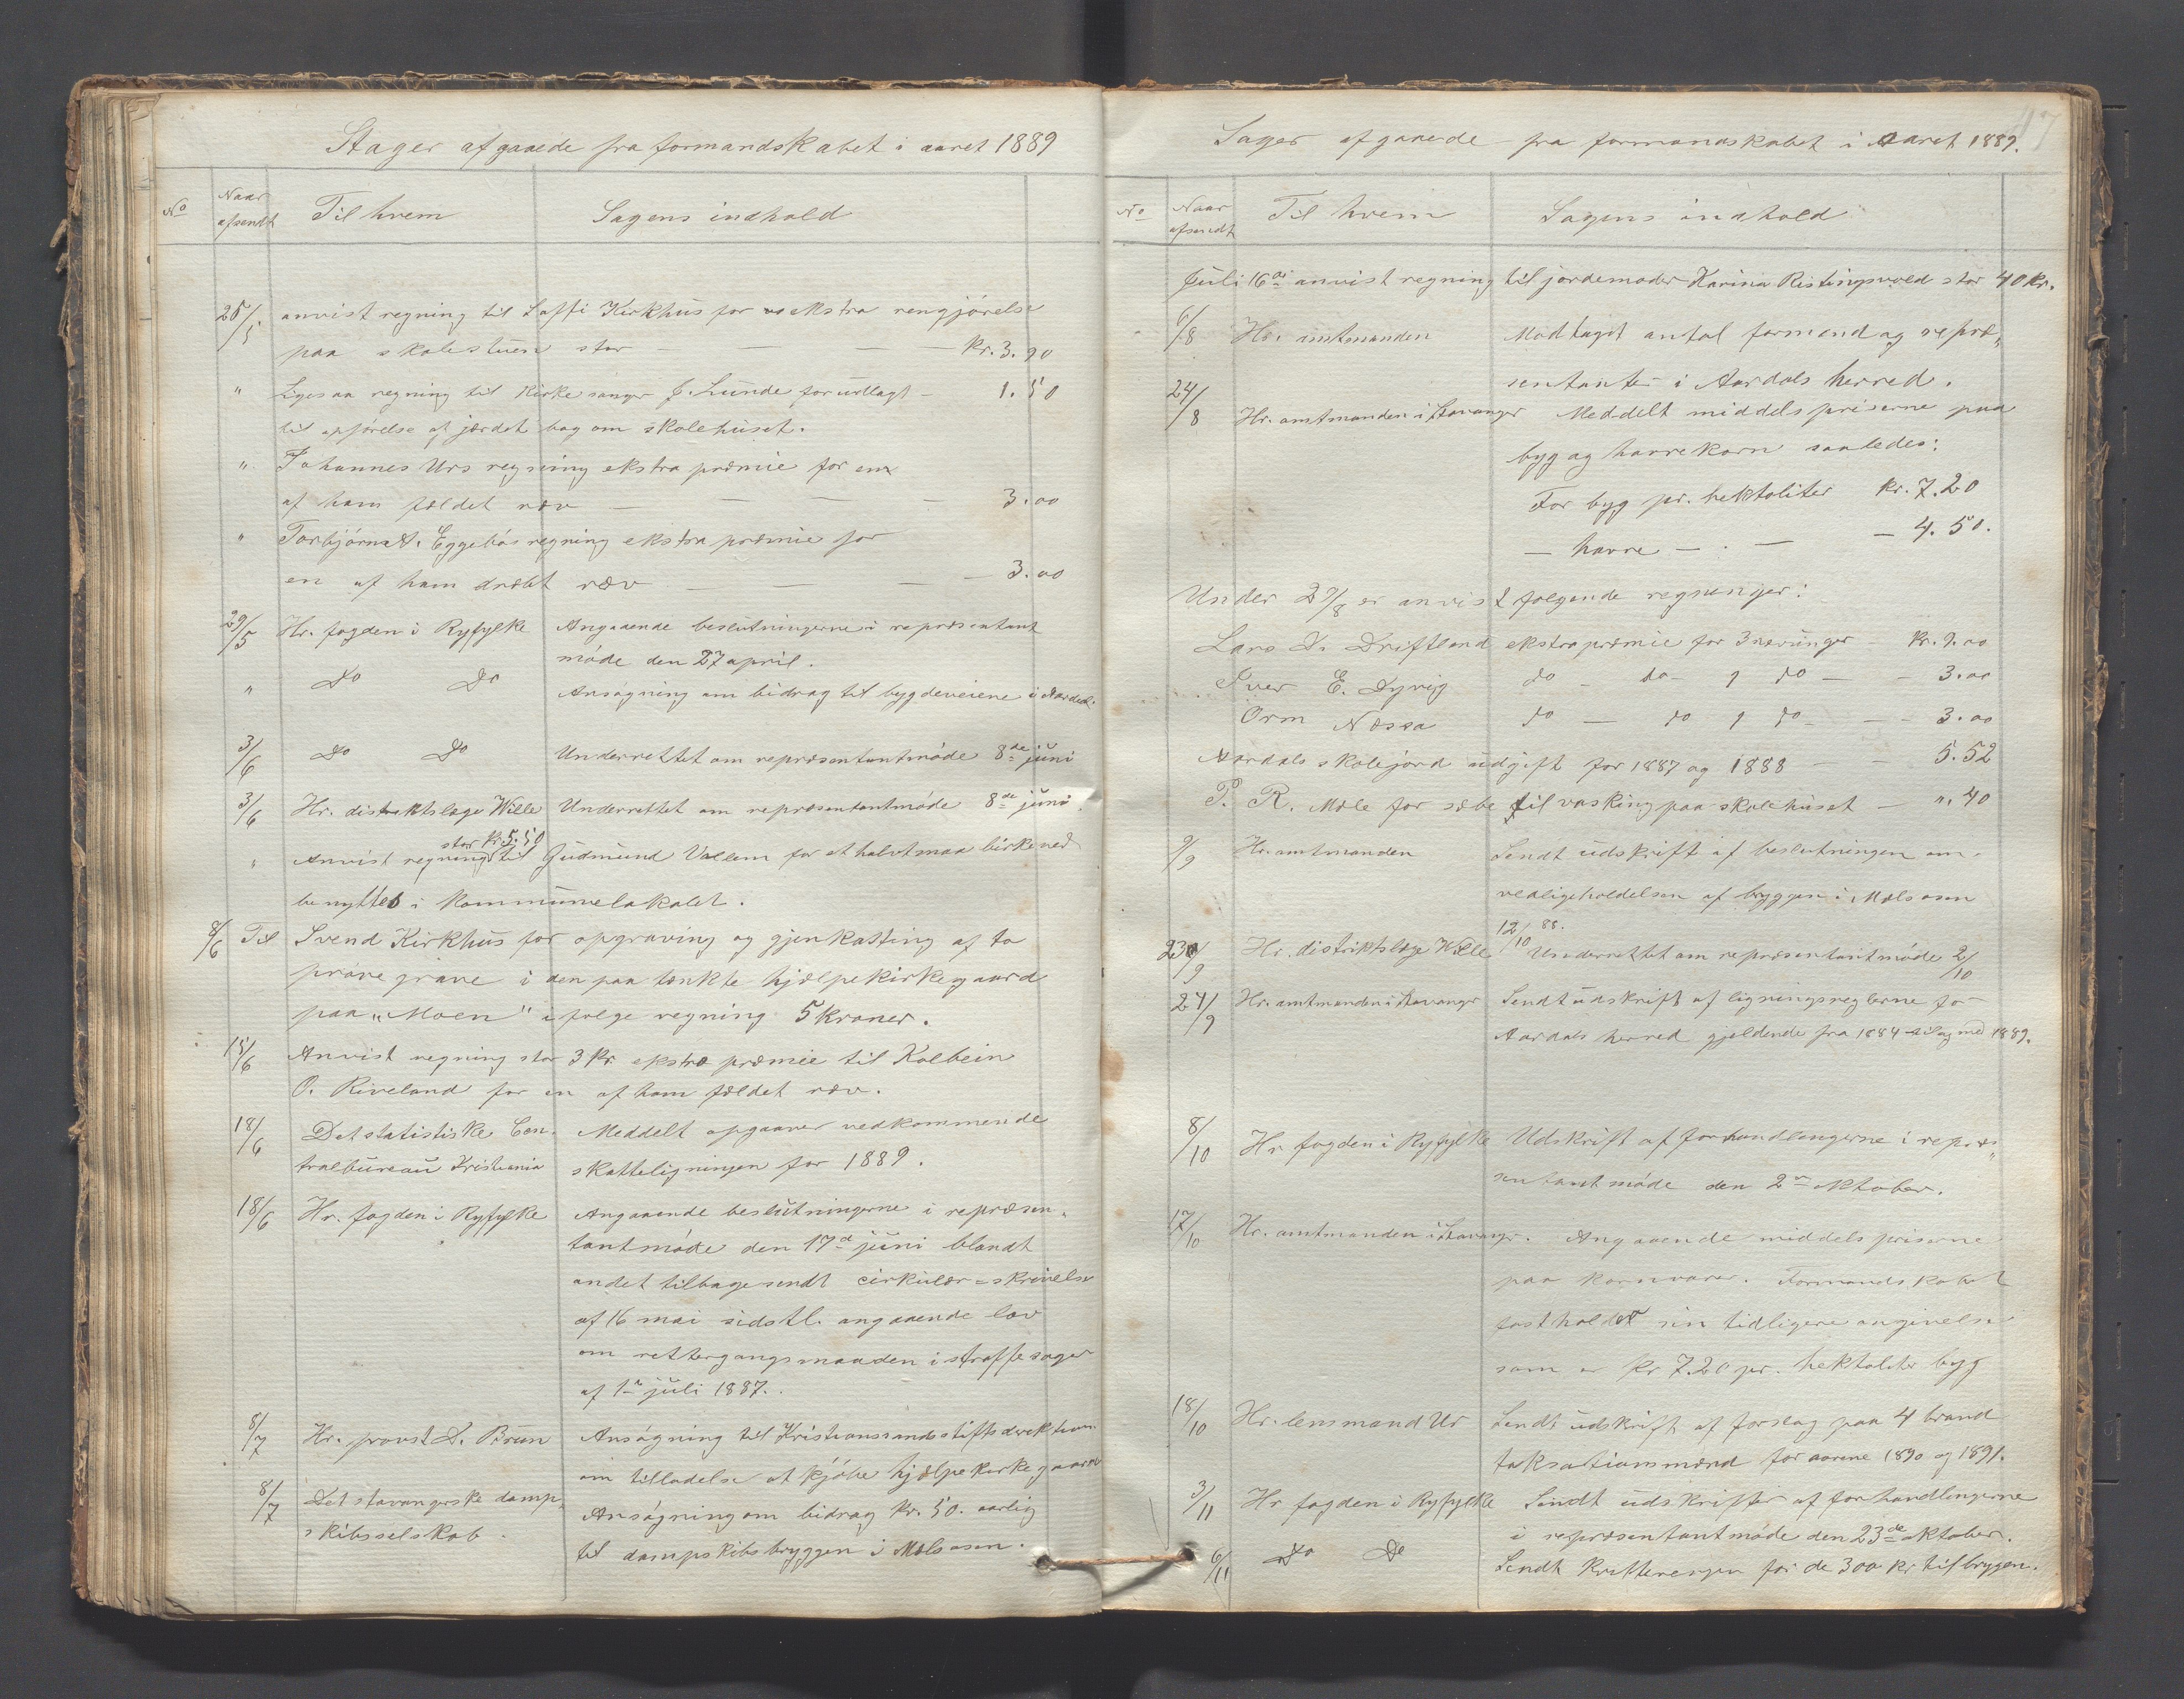 Sager afgaaede fra formandskabet i aaret 1889
No Naar afsendt Til hvem Sagens indhold
25/5 anvist regning til Saffi Kirkhus for ekstra rengjörelse
paa skolestuen stor — — — kr. 3.90
" Ligesaa regning til Kirkesanger J. Lunde for udlagt — 1.50
til opførelse af jærdet bag om skolehuset.
" Johannes Urs regning ekstra præmie for en
af ham fældet ræv — — — 3.00
" Torbjörn A. Eggebös regning ekstra præmie for
en af ham dræbt ræv — — — 3.00
29/5 Hr. fogden i Ryfylke Angaaende beslutningerne i repræsentant
möde den 27 april.
" Do Do Ansögning om bidrag til bygdeveiene i Aardal.
3/6 Do Do Underrettet om repræsentantmöde 8de juni
3/6 Hr. distriktslæge Wille Underrettet om repræsentantmöde 8de juni.
stor kr. 5.50
" Anvist regning til Gudmund Valheim for et halvt maa birkeved
benyttet i kommunelokalet.
8/6 Til Svend Kirkhus for opgraving og gjenkasting af to
pröve grave i den paa tænkte hjælpekirkegaard
paa "Moen" ifølge regning 5 kroner.
15/6 Anvist regning stor 3 kr ekstra præmie til Kolbein
O. Riveland for en af ham fældet ræv.
18/6 Det statistiske Cen- Meddelt opgaver vedkommende
tralbureau Kristiania skatteligningen for 1889.
18/6 Hr. fogden i Ryfylke Angaaende beslutningerne i repræsen-
tantmöde den 17de juni blandt
andet tilbagesendt cirkulær=skrivelse
af 16 mai sidstl. angaaende lov
om rettergangsmaaden i straffesager
af 1ste juli 1887.
8/7 Hr. provst D. Brun Ansögning til Kristianssands stiftsdirektion
om tilladelse at kjöbe hjælpekirkegaard
8/7 Det stavangerske damp- Ansögning om bidrag kr. 50. aarlig
skibsselskab. til dampskibsbryggen i Mælsosen.
47
Sager afgaaede fra formandskabet i Aaret 1889.
No Naar afsendt Til hvem Sagens indhold
Juli 16de anvist regning til jordemoder Karina Ristingvold stor 40 kr.
6/8 Hr. amtmanden Modtaget antal formænd og repræ-
sentanter i Aardals herred.
24/8 Hr. amtmanden i Stavanger Meddelt middelspriserne paa
byg og havrekorn saaledes:
For byg pr. hektoliter kr. 7.20
— havre — . — — 4.50.
Under 27/8 er anvist følgende regninger:
Lars D. Driftland ekstrapræmie for 3 ræuunger — kr. 9.00
Iver E. Dyrig do — do — 1 do — — 3.00
Orm Næssa do — do 1 do — — 3.00
Aardals skolejord udgift for 1887 og 1888 — — 5.52
P. R. Mæle for sæbe til vasking paa skolehuset — ". 40
9/9 Hr. amtmanden Sendt udskrift af beslutningen om
vedligeholdelsen af bryggen i Mælsosen
12/10 88.
23/9 Hr. distriktslæge Wille Underrettet om repræsentantmöde 2/10
24/9 Hr. amtmanden i Stavanger Sendt udskrift af ligningsreglerne for
Aardals herred gjeldende fra 1884 til og med 1889.
8/10 Hr. fogden i Ryfylke Udskrift af forhandlingerne i repræ-
sentantmöde den 2den oktober.
17/10 Hr. amtmanden i Stavanger. Angaaende middelspriserne
paa kornvarer. Formandskabet
fastholdt sin tidligere angivelse
som er kr 7.20 pr. hektoliter byg
18/10 Hr. lensmand Ur Sendt udskrift af forslag paa 4 brand
taksationsmænd for aarene 1890 og 1891.
3/11 Hr fogden i Ryfylke Sendt udskrifter af forhandlingerne
i repræsentantmöde den 23de oktober.
6/11 Do Do Sendt kvitteringen for de 300 kr til bryggen.